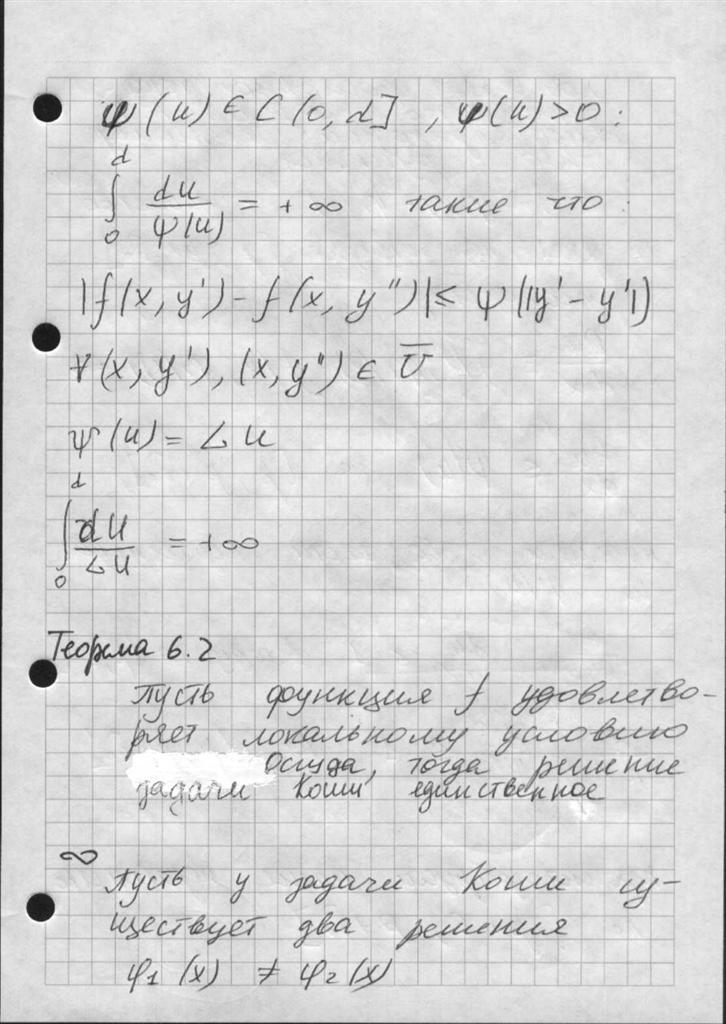 ψ(u) ∈ C(0, d], ψ(u) > 0 :
∫₀ᵈ du/ψ(u) = +∞ такие что :
|f(x, y') - f(x, y'')| ≤ ψ(|y' - y'|)
∀(x, y'), (x, y'') ∈ U̅
ψ(u) = Lu
∫₀ᵈ du/Lu = +∞
Теорема 6.2
Пусть функция f удовлетво-
ряет локальному условию
Осгуда, тогда решение
задачи Коши единственное
Пусть у задачи Коши су-
ществует два решения
φ₁(x) ≠ φ₂(x)